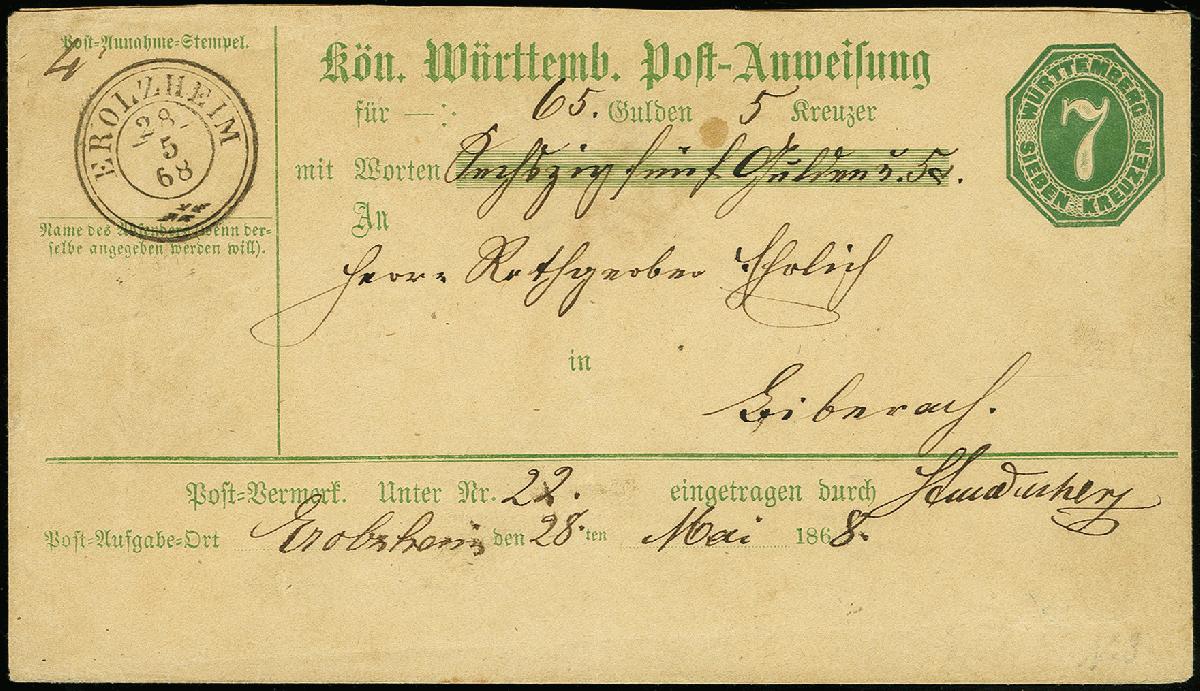 Post-Annahme-Stempel.
4
EROLZHEIM
28
5
68
Name des Absenders (wenn der-
selbe angegeben werden will).
Kön. Württemb. Post-Anweisung
für 65. Gulden 5 Kreuzer
mit Worten Sechszig fünf Gulden u. 5 x.
An
Herrn Rothgerber Ehrlich
in
Biberach.
WÜRTTEMBERG
7
SIEBEN KREUZER
Post-Vermerk. Unter Nr. 22. eingetragen durch
Post-Aufgabe-Ort Erolzheim den 28. ten Mai 1868.